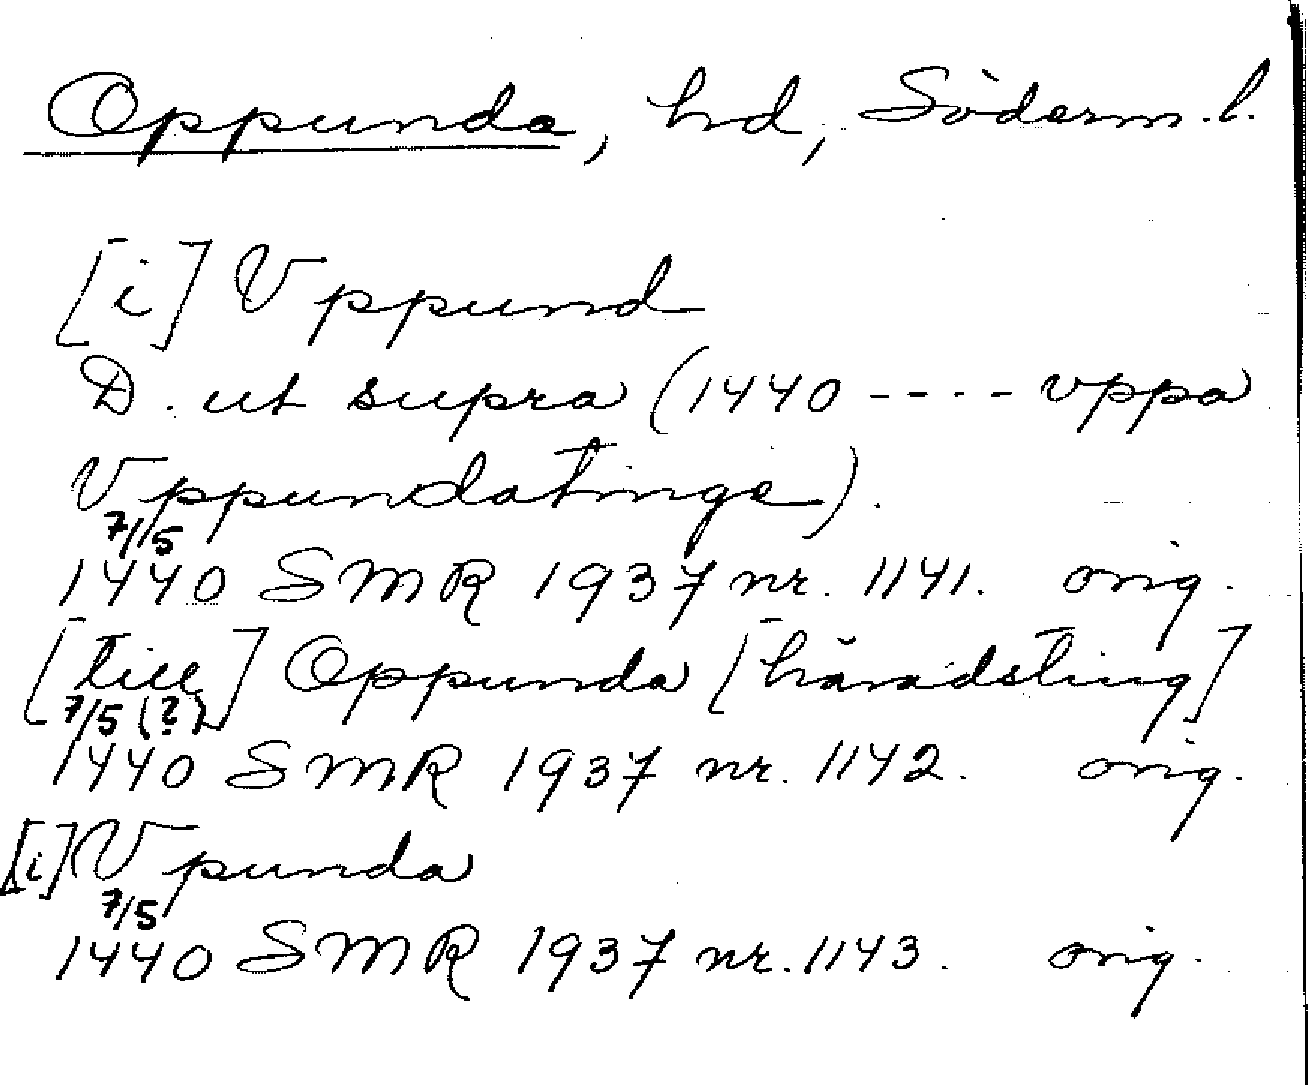 Oppunda, hd, Söderm.l.
[i] Vppund
D. ut supra (1440 ---- vppa
Vppundatinge).
7/5
1440 SMR 1937 nr. 1141. orig.
[till] Oppunda [häradsting]
7/5 (?)
1440 SMR 1937 nr. 1142. orig.
[i] Vpunda
7/5
1440 SMR 1937 nr. 1143. orig.